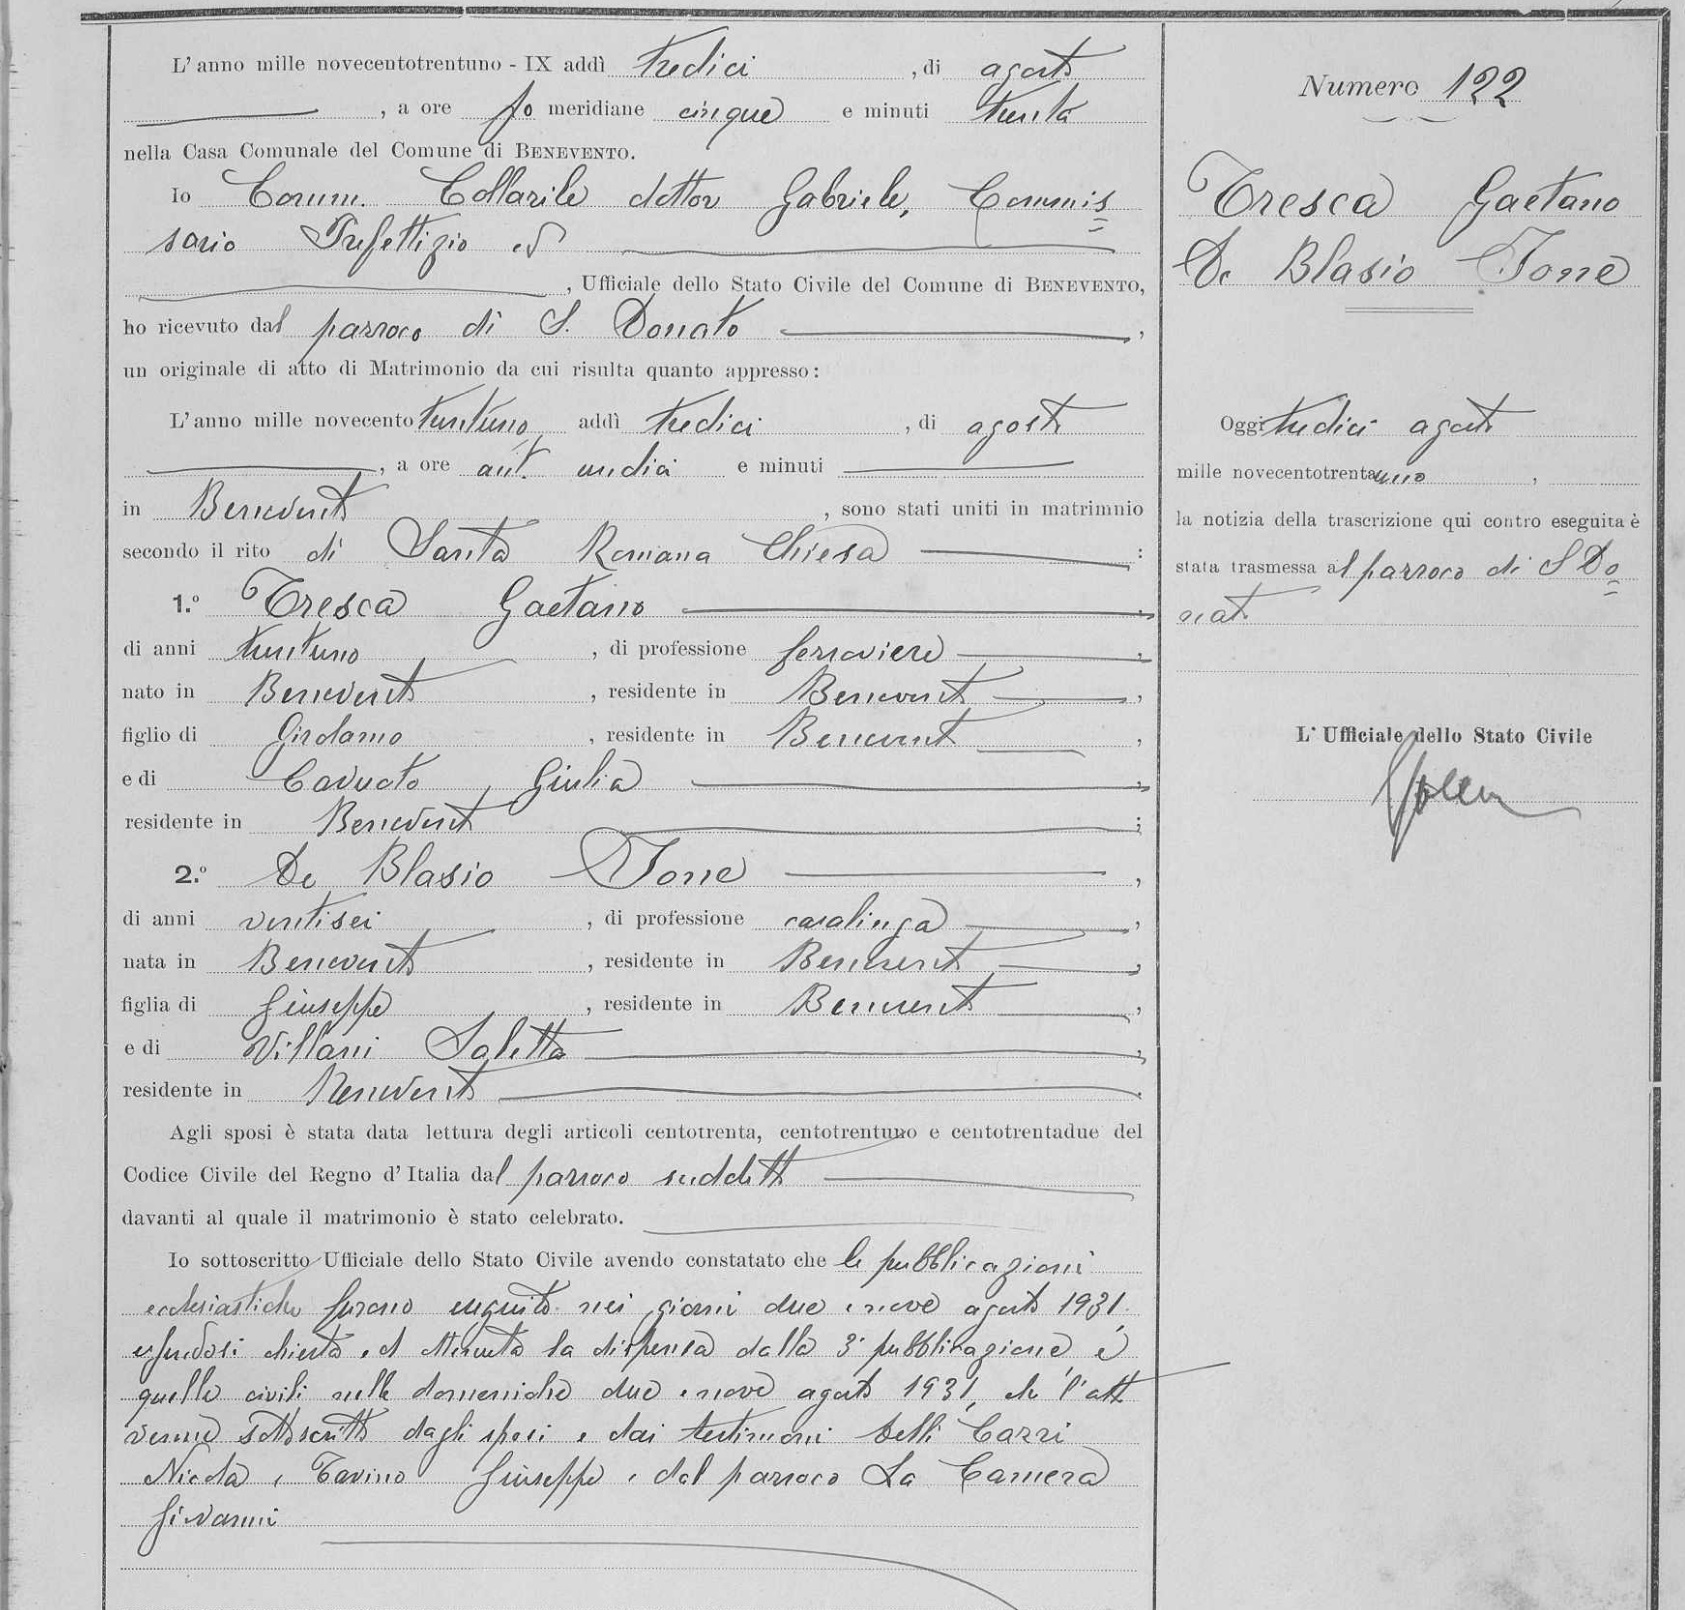 L'anno mille novecentotrentuno - IX addì tredici, di agosto
, a ore po meridiane cinque e minuti trenta
nella Casa Comunale del Comune di BENEVENTO.
Io Comm. Collarile dottor Gabriele, Commis
sario Prefettizio ed
, Ufficiale dello Stato Civile del Comune di BENEVENTO,
ho ricevuto dal parroco di S. Donato,
un originale di atto di Matrimonio da cui risulta quanto appresso:
L'anno mille novecento trentuno addì tredici, di agosto
, a ore ant. undici e minuti
in Benevento, sono stati uniti in matrimnio
secondo il rito di Santa Romana Chiesa :
1.° Tresca Gaetano,
di anni trentuno, di professione ferroviere,
nato in Benevento, residente in Benevento,
figlio di Girolamo, residente in Benevento,
e di Cavuoto Giulia,
residente in Benevento;
2.° De Blasio Jone,
di anni ventisei, di professione casalinga,
nata in Benevento, residente in Benevento,
figlia di Giuseppe, residente in Benevento,
e di Villani Saletta,
residente in Benevento.
Agli sposi è stata data lettura degli articoli centotrenta, centotrentuno e centotrentadue del
Codice Civile del Regno d'Italia dal parroco suddetto
davanti al quale il matrimonio è stato celebrato.
Io sottoscritto Ufficiale dello Stato Civile avendo constatato che le pubblicazioni
ecclesiastiche furono eseguite nei giorni due e nove agosto 1931,
essendosi chiesta ed ottenuta la dispensa dalla 3ª pubblicazione, e
quelle civili nelle domeniche due e nove agosto 1931, che l'atto
venne sottoscritto dagli sposi e dai testimoni Delli Carri
Nicola e Tavino Giuseppe e dal parroco La Camera
Giovanni
Numero 122
Tresca Gaetano
De Blasio Jone
Oggi tredici agosto
mille novecentotrentauno,
la notizia della trascrizione qui contro eseguita è
stata trasmessa al parroco di S Do
nato
L'Ufficiale dello Stato Civile